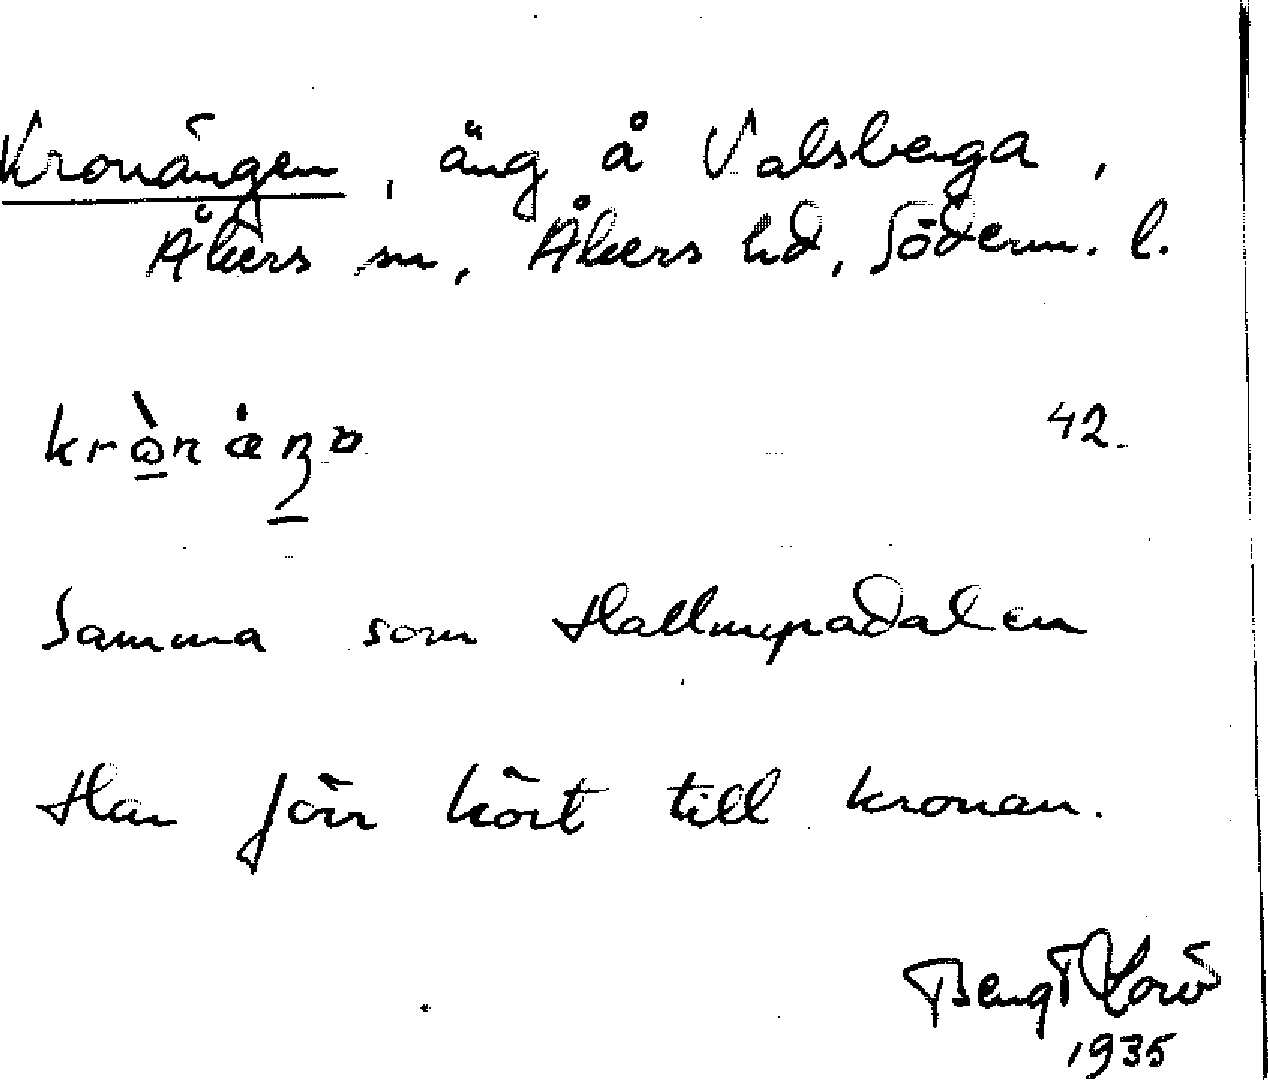 Kronängen, äng å Valsberga,
Åkers sn, Åkers hd, Söderm. l.
42.
Samma som Hallmyradalen
Har förr hört till kronan.
Bengt
1935